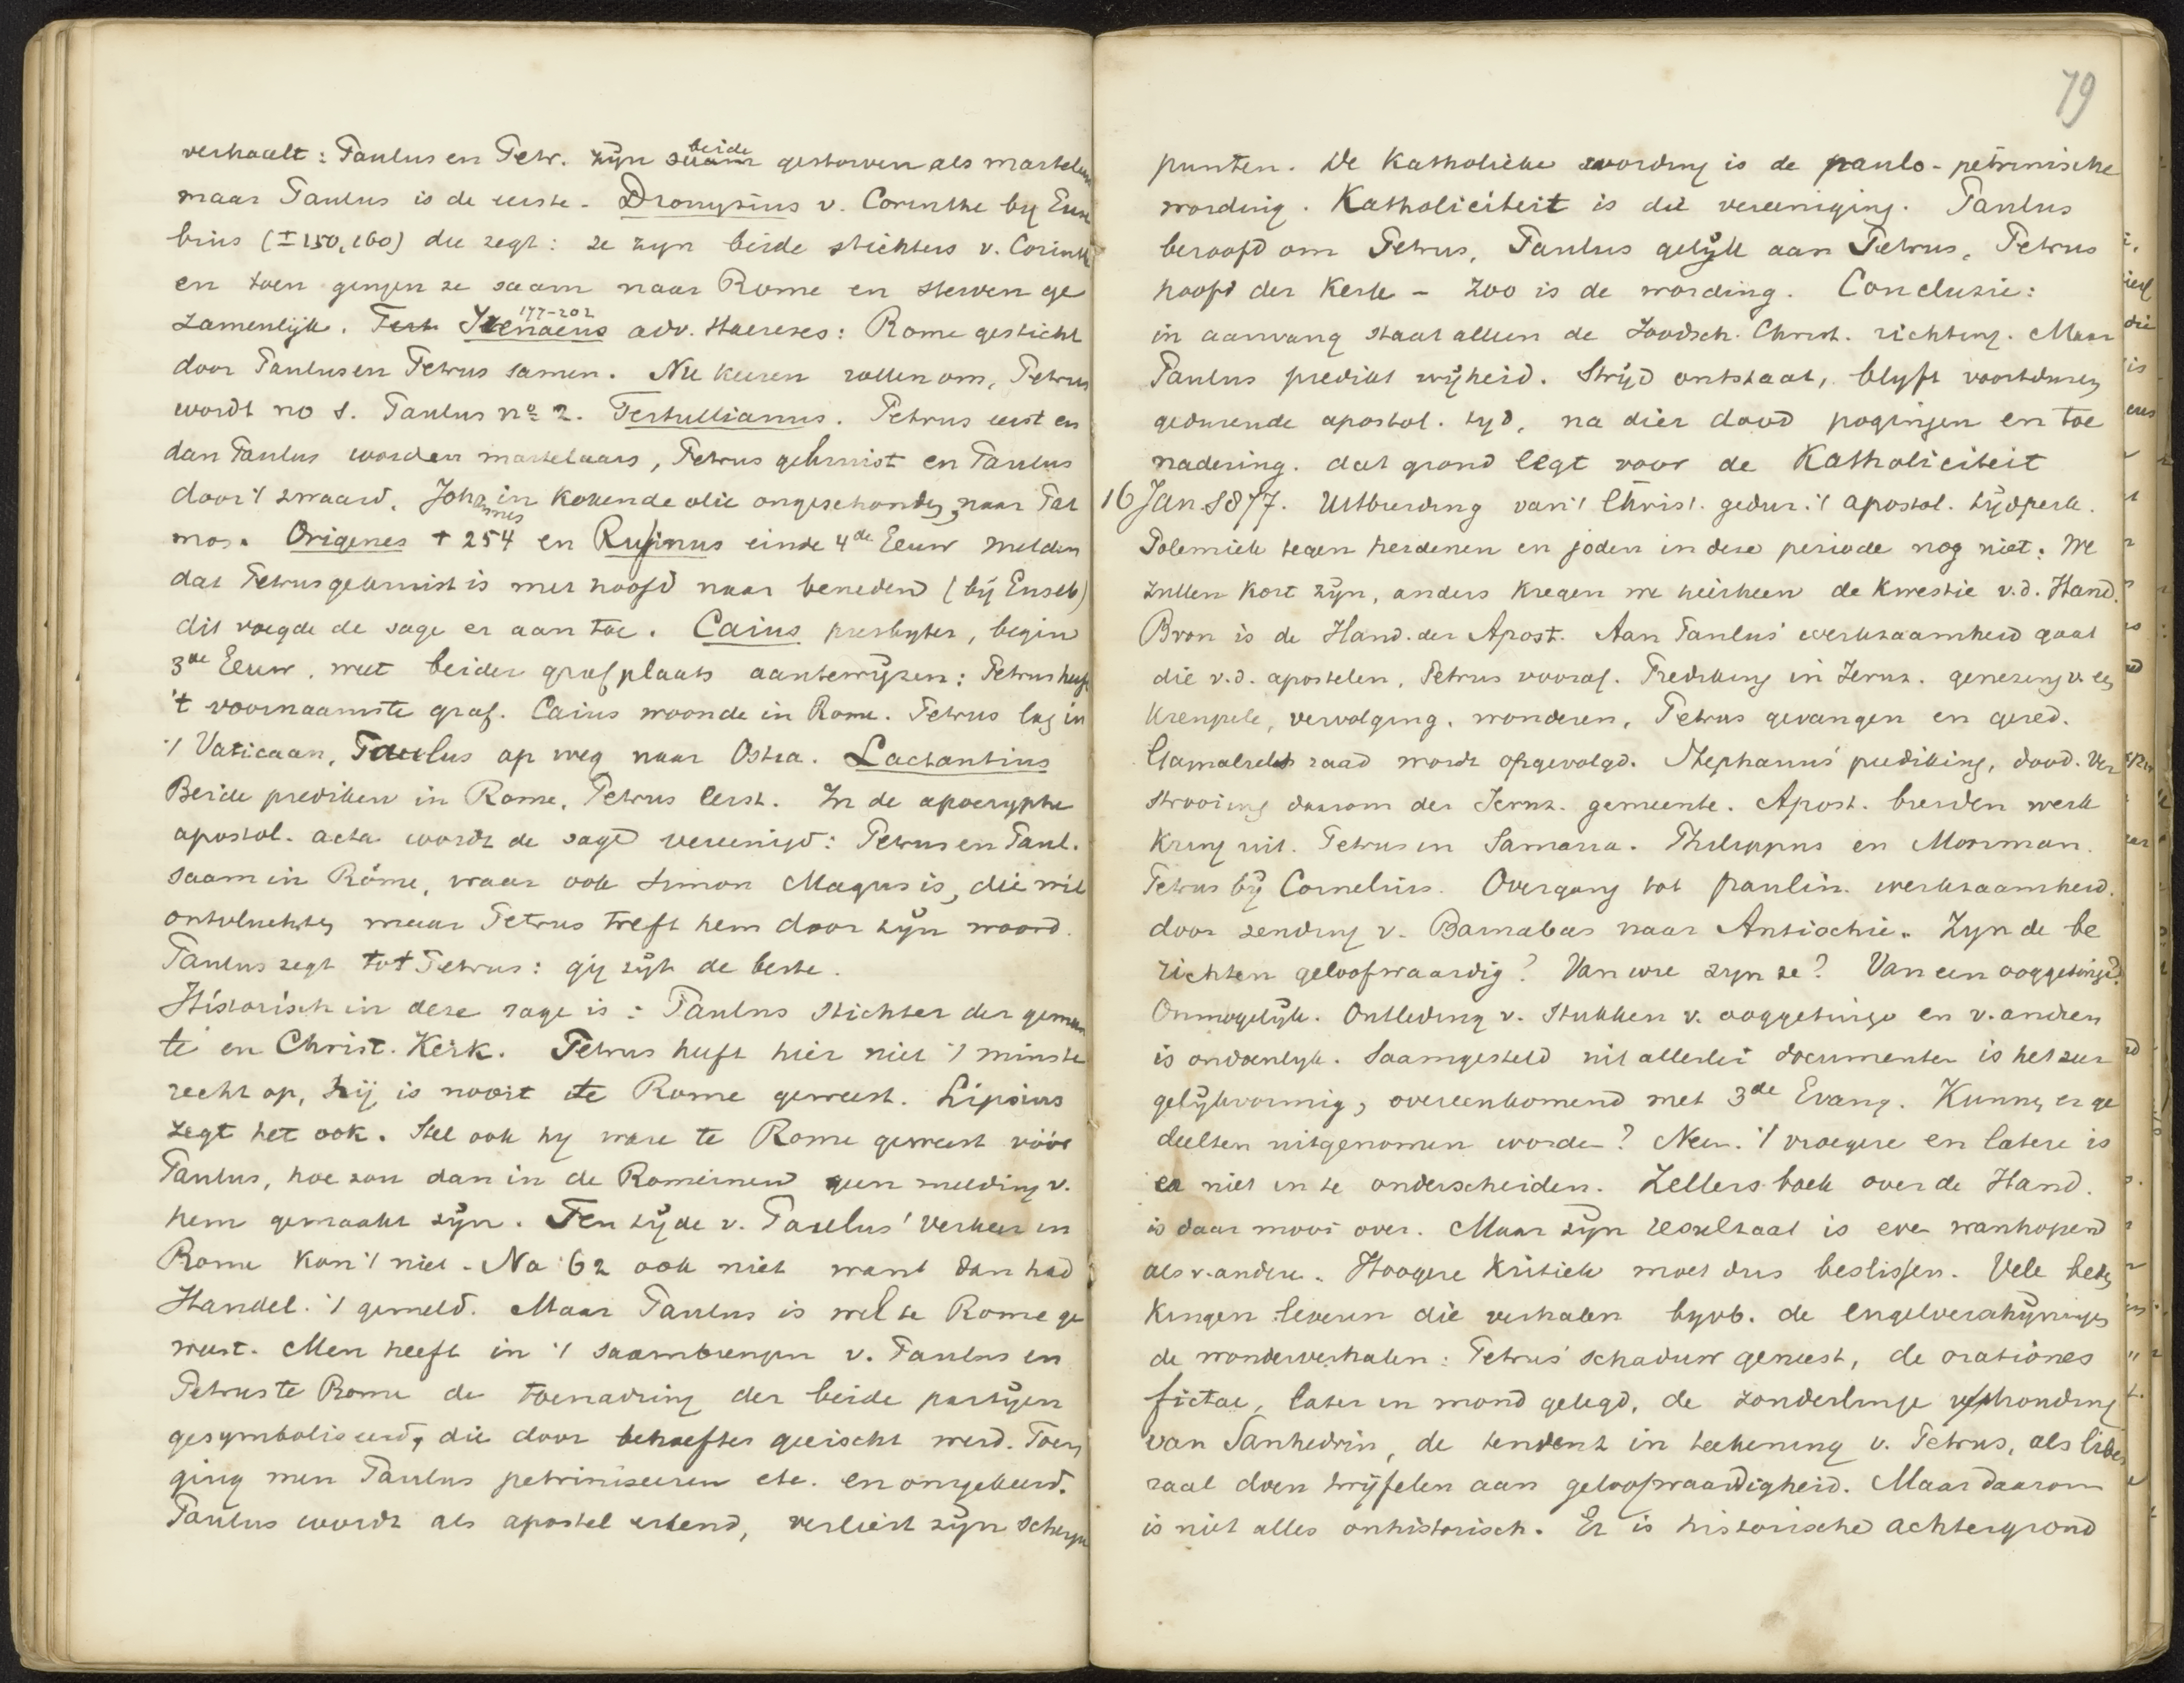 verhaalt: Paulus en Petr. zijn saam beide gestorven als martelaars
maar Paulus is de eerste. Dionysius v. Corinthe bij Euse
bius (± 150, 160) die zegt: ze zyn beide stichters v. Corinthe
en toen gingen ze saam naar Rome en sterven ge
zamenlijk. Tert Irenaeus 177-202 adv. Haereses: Rome gesticht
door Paulus en Petrus samen. Nu keeren rollen om, Petrus
wordt no 1. Paulus no 2. Tertullianus. Petrus eerst en
dan Paulus worden martelaars, Petrus gekruist en Paulus
door 't zwaard. Johannes in kokende olie ongeschonden, naar Pat
mos. Origenes † 254 en Rufinus einde 4de Eeuw melden
dat Petrus gekruist is met hoofd naar beneden (bij Euseb)
dit voegde de sage er aan toe. Caius presbyter, begin
3de Eeuw, weet beider grafplaats aantewijzen: Petrus heeft
't voornaamste graf. Caius woonde in Rome. Petrus lag in
't Vaticaan, Paulus op weg naar Ostia. Lactantius
Beide prediken in Rome, Petrus eerst. In de apocryphe
apostol. acta wordt de sage vereenigd: Petrus en Paul.
saam in Rome, waar ook Simon Magus is, die wil
ontvluchten maar Petrus treft hem door zijn woord.
Paulus zegt tot Petrus: gij zijt de beste.
Historisch in deze sage is: Paulus stichter der gemeen
te en Christ. Kerk. Petrus heeft hier niet 't minste
recht op, hij is nooit te Rome geweest. Lipsius
zegt het ook. Stel ook hy ware te Rome geweest vóór
Paulus, hoe zou dan in de Romeinen geen melding v.
hem gemaakt zijn. Ten tijde v. Paulus' verkeer in
Rome kon 't niet. Na 62 ook niet want dan had
Handel. 't gemeld. Maar Paulus is wel te Rome ge
weest. Men heeft in 't saambrengen v. Paulus en
Petrus te Rome de toenadring der beide partijen
gesymboliseerd, die door behoeften geëischt werd. Toen
ging men Paulus petriniseeren etc. en omgekeerd.
Paulus wordt als apostel erkend, verliest zijn scherpe
79
punten. De Katholieke wording is de paulo-petrinische
wording. Katholiciteit is die vereeniging. Paulus
beroofd om Petrus, Paulus gelijk aan Petrus, Petrus
hoofd der Kerk - Zoo is de wording. Conclusie:
in aanvang staat alleen de Joodsch. Christ. richting. Maar
Paulus predikt vrijheid. Strijd ontstaat, blyft voortduren
gedurende apostol. tyd, na dier dood pogingen en toe
nadering. dat grond legt voor de Katholiciteit
16 Jan. 1877. Uitbreiding van 't Christ. gedur. 't apostol. tijdperk.
Polemiek tegen heidenen en joden in deze periode nog niet. We
zullen kort zijn, anders kregen we hierheen de kwestie v.d. Hand.
Bron is de Hand. der Apost. Aan Paulus' werkzaamheid gaat
die v.d. apostelen, Petrus vooraf. Prediking in Jeruz. genezing v. een
kreupele, vervolging, wonderen, Petrus gevangen en gered.
Gamaliels raad wordt opgevolgd. Stephanus' prediking, dood. Ver
strooiing daarom der Jeruz. gemeente. Apost. breiden werk
kring uit. Petrus in Samaria. Philippus en Moorman.
Petrus bij Cornelius. Overgang tot paulin. werkzaamheid.
door zending v. Barnabas naar Antiochie. Zyn de be
richten geloofwaardig? Van wie zyn ze? Van een ooggetuige?
Onmogelijk. Ontleding v. stukken v. ooggetuige en v. andren
is ondoenlyk. Saamgesteld uit allerlei documenten is het zeer
gelijkvormig, overeenkomend met 3de Evang. Kunnen er ge
deelten uitgenomen worden? Neen. 't vroegere en latere is
er niet in te onderscheiden. Zellers boek over de Hand.
is daar mooi over. Maar zijn resultaat is even wanhopend
als v. andere. Hoogere Kritiek moet dus beslissen. Vele beden
kingen leveren die verhalen byvb. de engelverschijningen
de wonderverhalen: Petrus' schaduw geneest, de orationes
fictae, later in mond gelegd, de zonderlinge houding
van Sanhedrin, de tendenz in teekening v. Petrus, als libe
raal doen twijfelen aan geloofwaardigheid. Maar daarom
is niet alles onhistorisch. Er is historische achtergrond